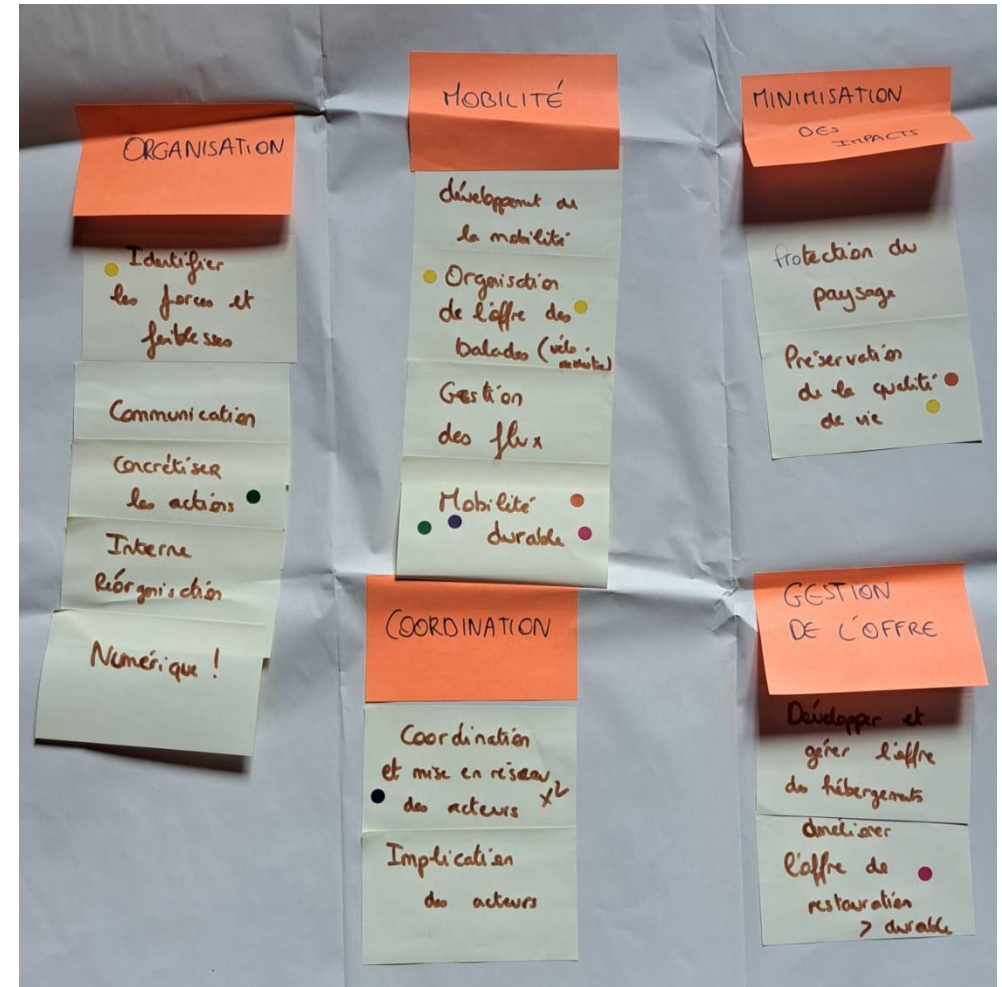 ORGANISATION
Identifier
les forces et
faiblesses
Communication
Concrétiser
les actions
Interne
Réorganisation
Numérique !
MOBILITÉ
développement de
la mobilité
Organisation
de l'offre des
balades (vélo
Gestion
des flux
Mobilité
durable
COORDINATION
Coordination
et mise en réseau
des acteurs x2
Implication
des acteurs
MINIMISATION
DES
IMPACTS
Protection du
paysage
Préservation
de la qualité
de vie
GESTION
DE L'OFFRE
Développer et
gérer l'offre
des hébergements
améliorer
l'offre de
restauration
> durable